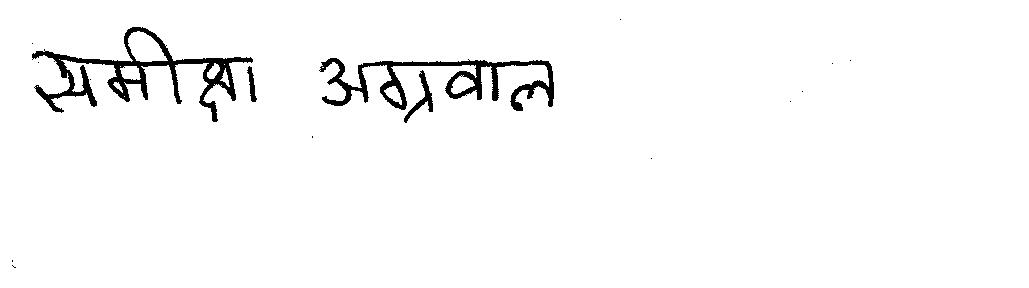 समीक्षा अग्रवाल